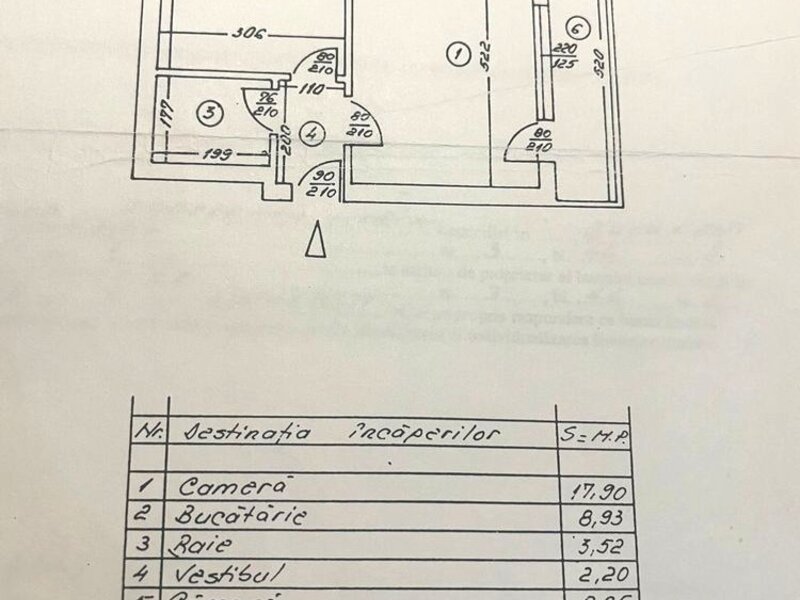 306
80
210
1
522
6
220
125
520
110
76
210
177
3
200
4
80
210
80
210
199
90
210
Nr. Destinația încăperilor S=M.P.
1 Cameră 17,90
2 Bucătărie 8,93
3 Baie 3,52
4 Vestibul 2,20